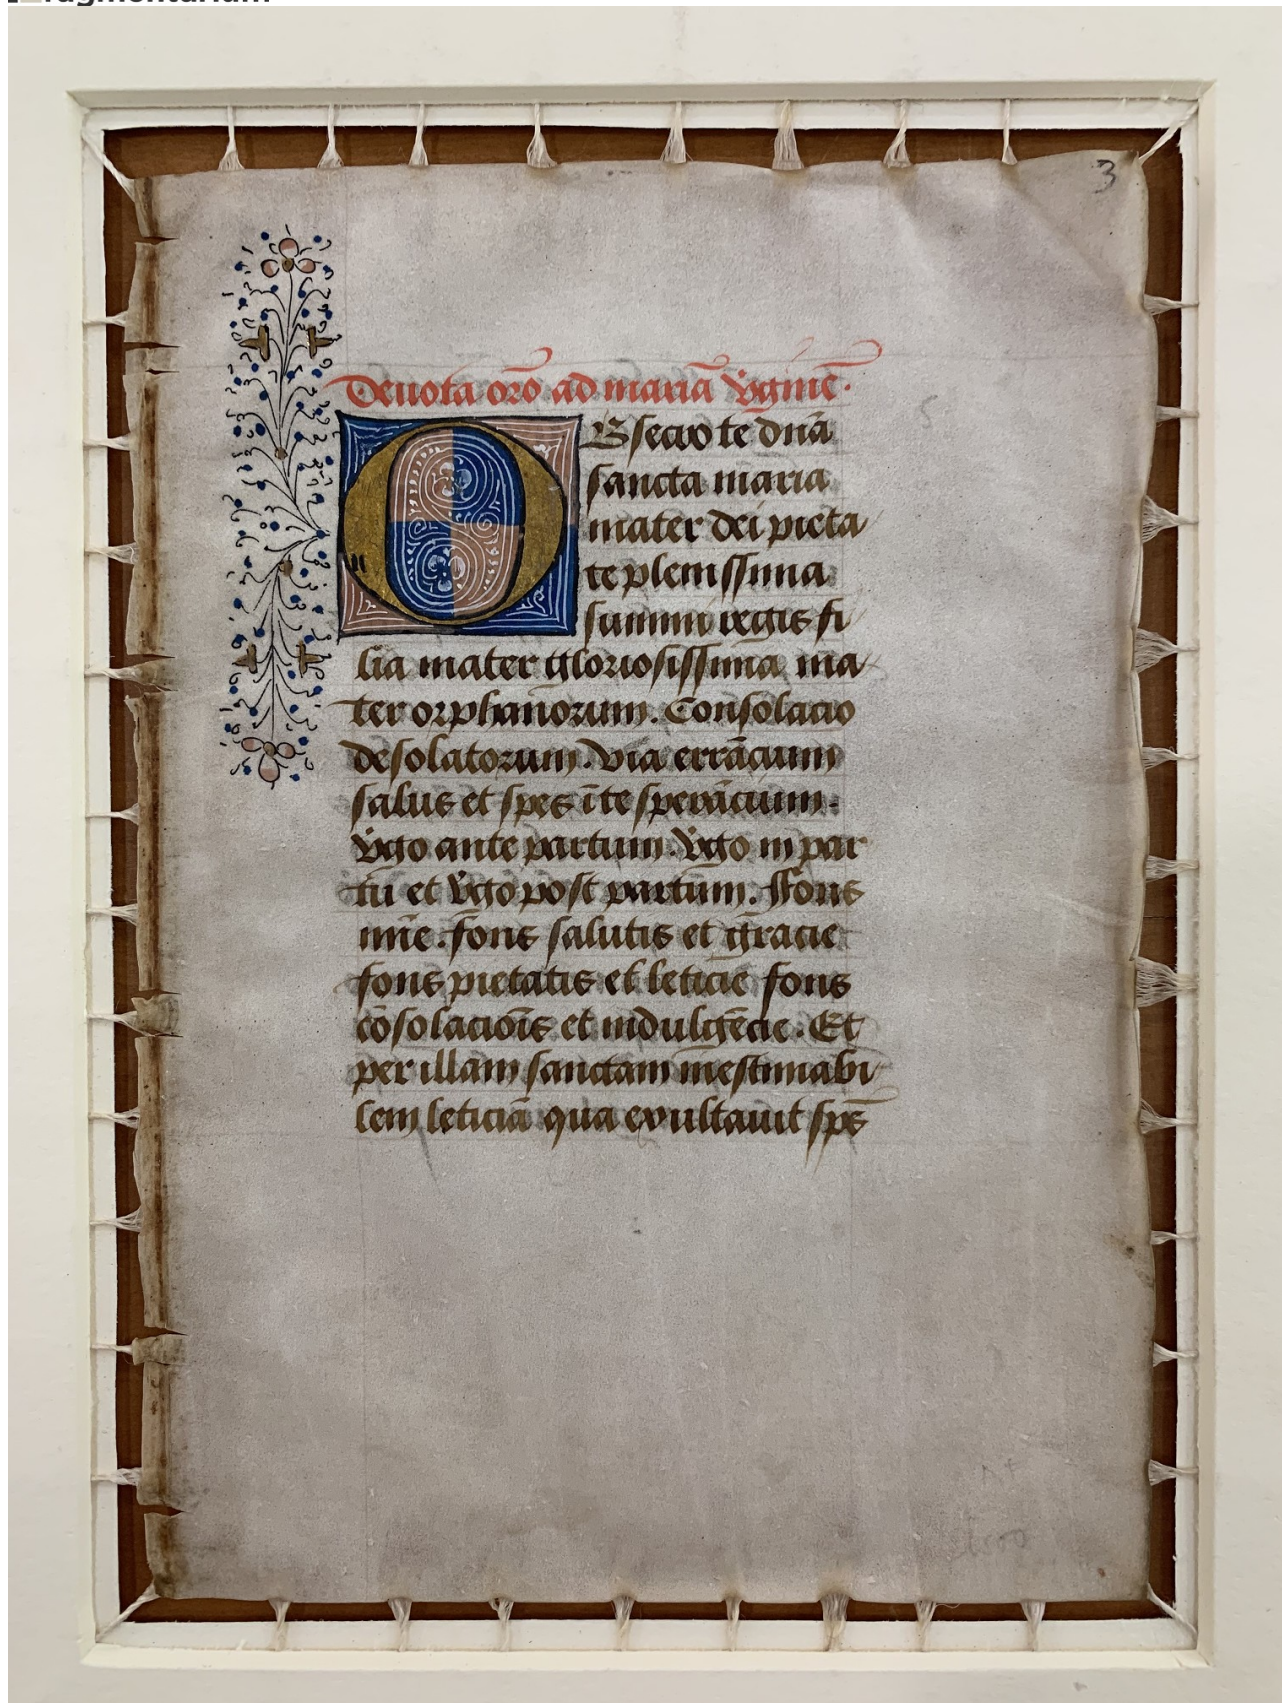 fragmentarium
3
Deuota oro̅ ad maria̅ v̾gine̅.
5
OBsecro te dn̅a
sancta maria
mater dei pieta
te plenissima
summi regis fi
lia mater gloriosissima ma
ter orphanorum. Consolacio
desolatorum. via erra̅cium
salus et spes i̅ te spera̅cium.
v̾go ante partum. v̾go in par
tu et v̾go post partum. Fons
mi̅e. fons salutis et gracie
fons pietatis et leticie fons
co̅solacio̅is et indulge̅cie. Et
per illam sanctam inestimabi
lem leticia̅ qua exultauit sps̅